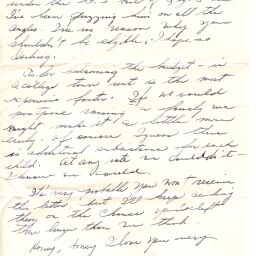 under the G.I. bill
I've been quizzing him on all the
angles. I see no reason why you
shouldn't be eligible; I hope so
darling.
As for balancing the budget - in
a college town rent is the most
expensive factor. If we could
postpone raising a family we
might make it a little more
easily. Of course I guess there
is additional subsistence for each
child. At any rate we couldn't -
I know we would.
It's very probable you won't receive
this letter, but I'll keep sending
them on the chance you're left
there longer than we think.
Honey, Honey I love you very